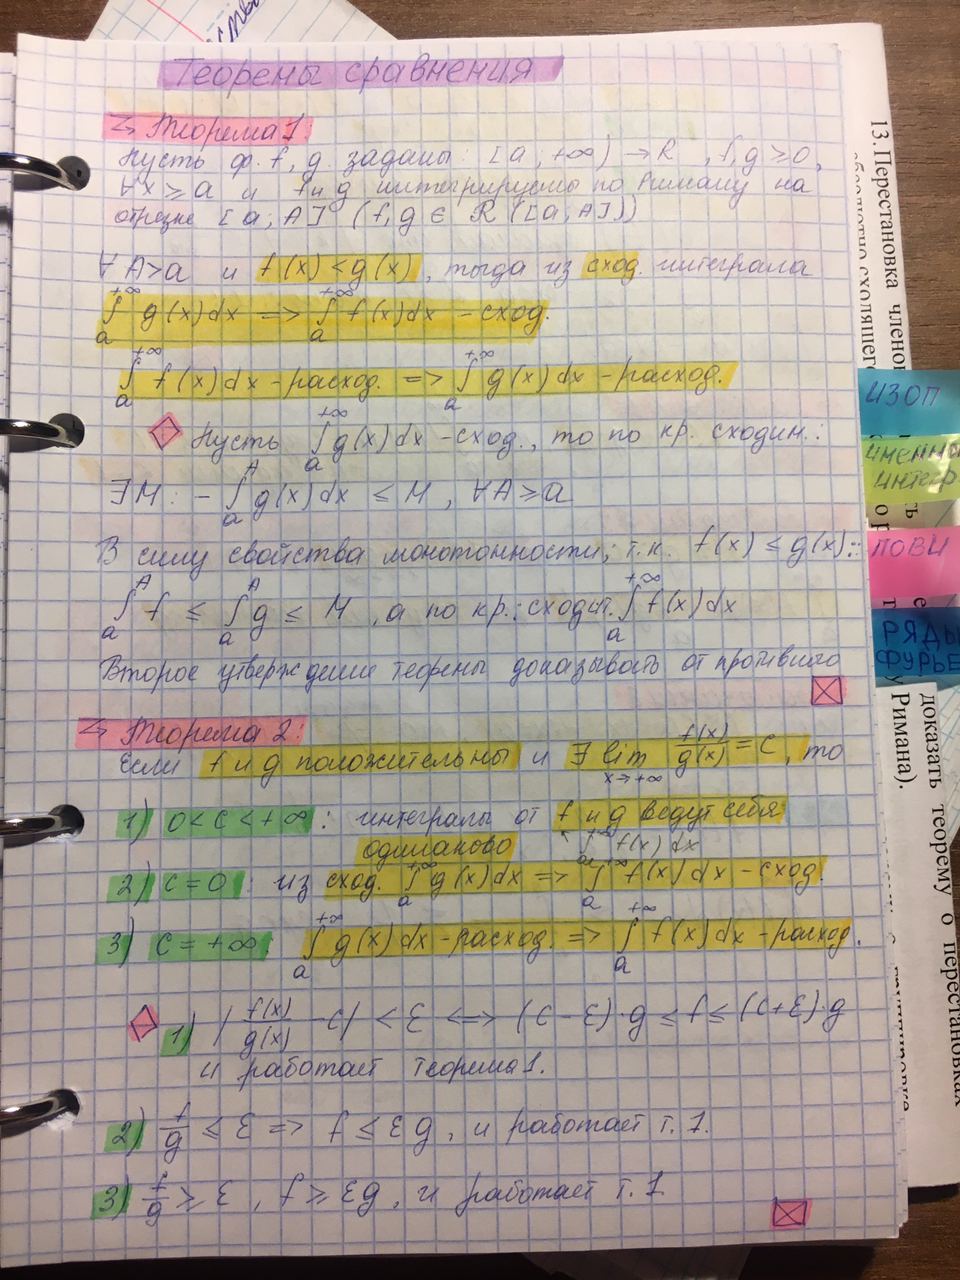 Теоремы сравнения
Теорема 1:
Пусть ф. f, g заданы: [a; +∞) → R, f, g ≥ 0,
∀x ≥ a и f и g интегрируемы по Риману на
отрезке [a; A] (f, g ∈ R([a; A]))
∀A > a и f(x) ≤ g(x), тогда из сход. интеграла
∫ₐ^{+∞} g(x)dx => ∫ₐ^{+∞} f(x)dx - сход.
∫ₐ^{+∞} f(x)dx - расход. => ∫ₐ^{+∞} g(x)dx - расход.
Пусть ∫ₐ^{+∞} g(x)dx - сход., то по кр. сходим.:
∃M: - ∫ₐ^A g(x)dx ≤ M, ∀A ≥ a
В силу свойства монотонности, т.к. f(x) ≤ g(x)::
∫ₐ^A f ≤ ∫ₐ^A g ≤ M, а по кр.: сходит. ∫ₐ^{+∞} f(x)dx
Второе утверждение теоремы доказывать от противного
Теорема 2:
Если f и g положительны и ∃ lim_{x→+∞} f(x)/g(x) = C, то
1) 0 < C < +∞: интегралы от f и g ведут себя
одинаково ∫ₐ^{+∞} f(x) dx
2) C = 0: из сход. ∫ₐ^{+∞} g(x)dx => ∫ₐ^{+∞} f(x)dx - сход.
3) C = +∞: ∫ₐ^{+∞} g(x)dx - расход. => ∫ₐ^{+∞} f(x)dx - расход.
1) |f(x)/g(x) - C| < ε <=> (C - ε)·g ≤ f ≤ (C + ε)·g
и работает теорема 1.
2) f/g ≤ ε => f ≤ εg, и работает т. 1.
3) f/g ≥ ε, f ≥ εg, и работает т. 1
13. Перестановка членов
абсолютно сходящегося
ИЗОП
ИНТЕГР
ПОВИ
РЯДЫ
ФУРЬЕ
доказать теорему о перестановках
Римана).